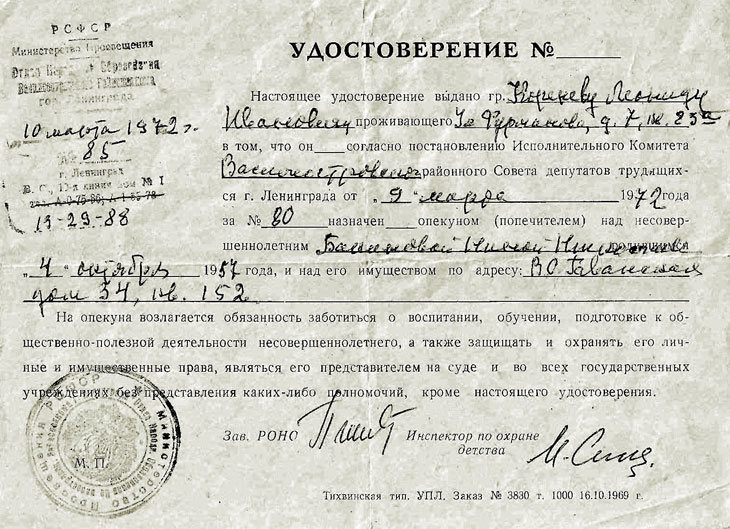 РСФСР
Министерство Просвещения
Отдел Народного Образования
Василеостровского Райисполкома
гор. Ленинграда
10 марта 1972 г.
№ 85
г. Ленинград
В. О., 13-я линия дом № 1
13-29-88
УДОСТОВЕРЕНИЕ №
Настоящее удостоверение выдано гр. Корневу Леониду
Ивановичу проживающего Ул Фурманова, д. 7, кв. 23а
в том, что он согласно постановлению Исполнительного Комитета
Василеостровского районного Совета депутатов трудящих-
ся г. Ленинграда от „9" марта 1972 года
за № 80 назначен опекуном (попечителем) над несовер-
шеннолетним Ниной родившимся
„4" октября 1957 года, и над его имуществом по адресу: ВО Гаванская
дом 34, кв. 152
На опекуна возлагается обязанность заботиться о воспитании, обучении, подготовке к об-
щественно-полезной деятельности несовершеннолетнего, а также защищать и охранять его лич-
ные и имущественные права, являться его представителем на суде и во всех государственных
учреждениях без представления каких-либо полномочий, кроме настоящего удостоверения.
М. П.
Министерство Просвещения РСФСР
Зав. РОНО
Инспектор по охране
детства
Тихвинская тип. УПЛ. Заказ № 3830 т. 1000 16.10.1969 г.